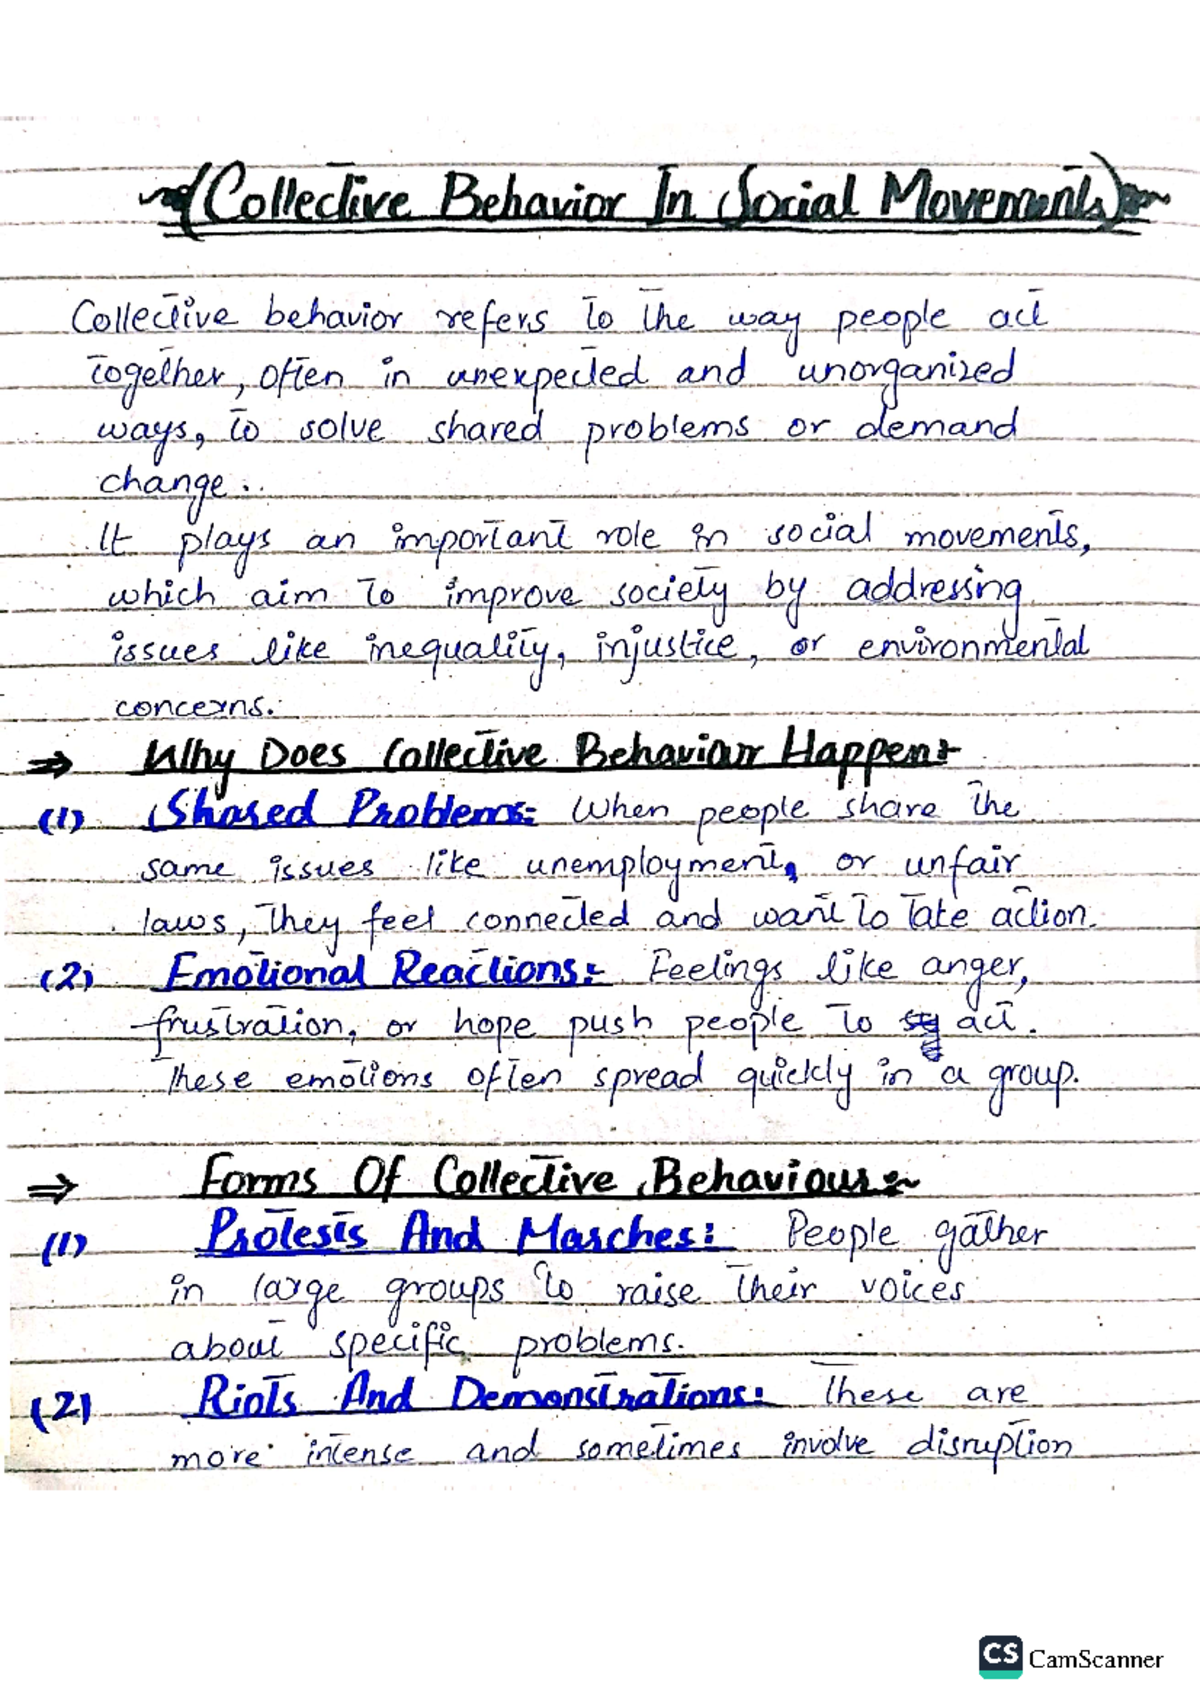 (Collective Behavior In Social Movements)
Collective behavior refers to the way people act
together, often in unexpected and unorganized
ways, to solve shared problems or demand
change.
It plays an important role in social movements,
which aim to improve society by addressing
issues like inequality, injustice, or environmental
concerns.
⇒ Why Does Collective Behaviour Happen:
(1) Shared Problems: When people share the
same issues like unemployment, or unfair
laws, they feel connected and want to take action.
(2) Emotional Reactions: Feelings like anger,
frustration, or hope push people to act.
These emotions often spread quickly in a group.
⇒ Forms Of Collective Behaviour:~
(1) Protests And Marches: People gather
in large groups to raise their voices
about specific problems.
(2) Riots And Demonstrations: These are
more intense and sometimes involve disruption
CS CamScanner